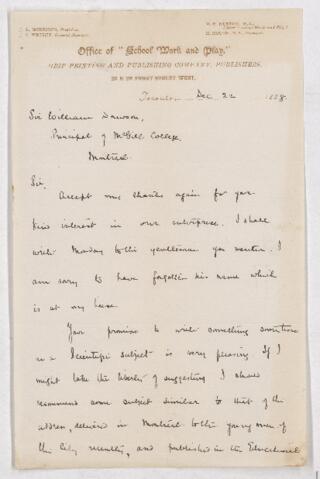 Office of "School Work and Play,"
GRIP PRINTING AND PUBLISHING COMPANY, PUBLISHERS,
26 & 28 FRONT STREET WEST.
Toronto, Dec 22 188
Sir William Dawson,
Principal of McGill College
Montreal
Sir,
Accept my thanks again for your
kind interest in our enterprise. I shall
write Monday to the gentleman you mention. I
am sorry to have forgotten his name which
is at my house
Your promise to write something sometime
on a Scientific subject is very pleasing. If I
might take the liberty of suggesting I should
recommend some subject similar to that of the
address, delivered in Montreal to the young men of
the city recently, and published in the Educational